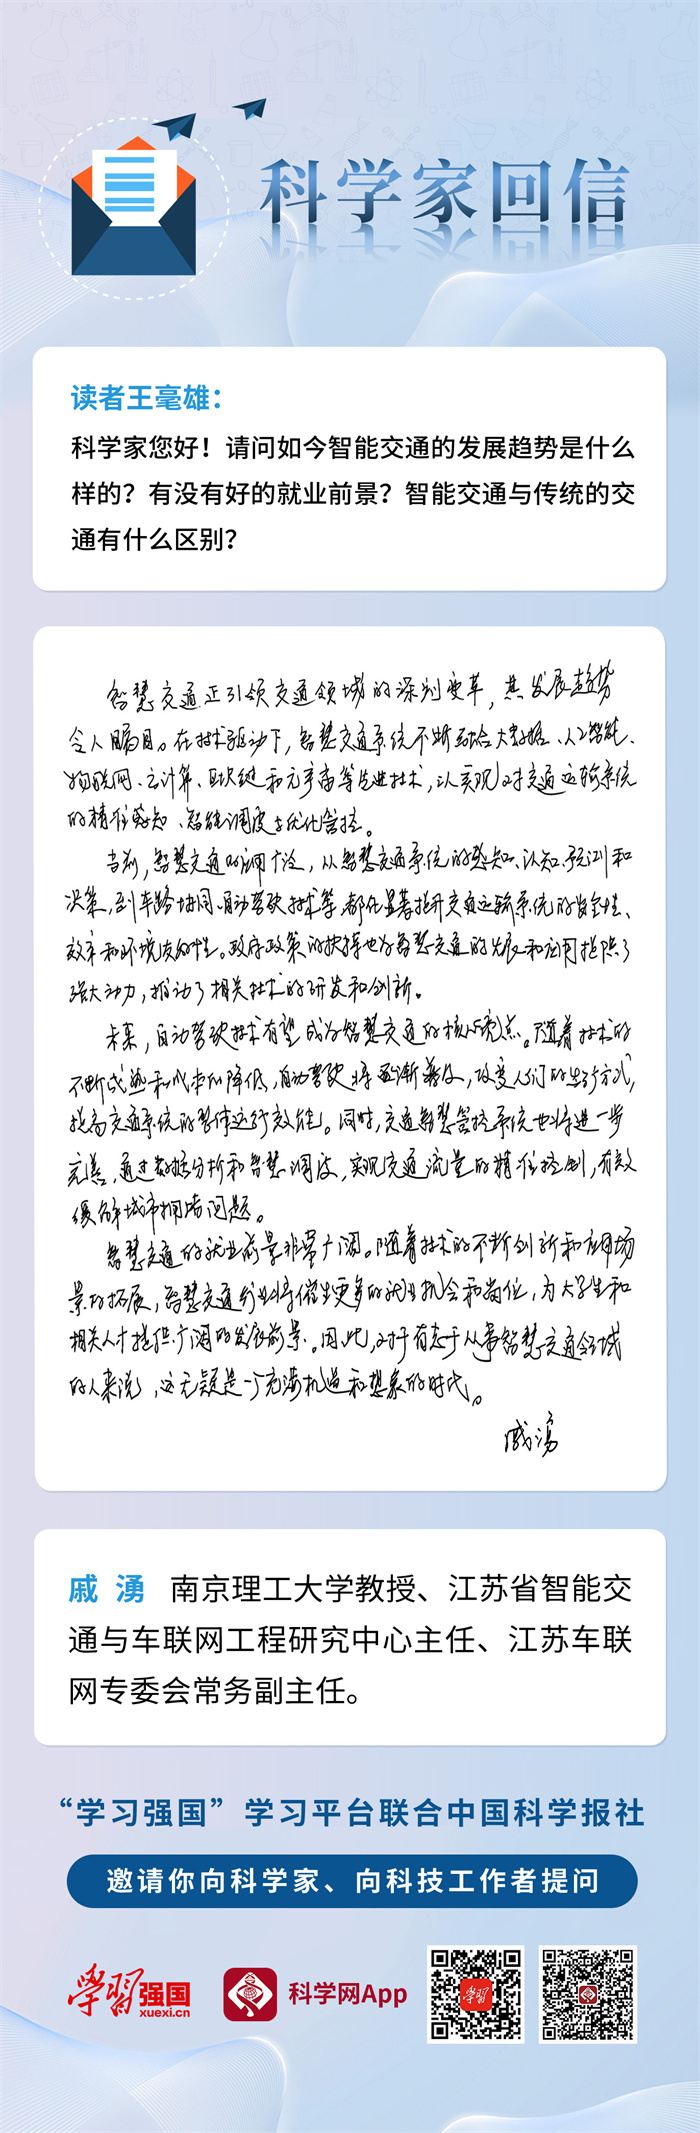 科学家回信
读者王毫雄：
科学家您好！请问如今智能交通的发展趋势是什么
样的？有没有好的就业前景？智能交通与传统的交
通有什么区别？
智慧交通正引领交通领域的深刻变革，其发展趋势
令人瞩目。在技术驱动下，智慧交通系统不断融合大数据、人工智能、
物联网、云计算、区块链和元宇宙等先进技术，以实现对交通运输系统
的精准感知、智能调度与优化管控。
当前，智慧交通应用广泛，从智慧交通系统的感知、认知、预测和
决策，到车路协同、自动驾驶技术等，都在显著提升交通运输系统的安全性、
效率和环境友好性。政府政策的扶持也为智慧交通的发展和应用提供了
强大动力，推动了相关技术的研发和创新。
未来，自动驾驶技术有望成为智慧交通的核心亮点。随着技术的
不断成熟和成本的降低，自动驾驶将逐渐普及，改变人们的出行方式，
提高交通系统的整体运行效能。同时，交通智慧管控系统也将进一步
完善，通过数据分析和智慧调度，实现交通流量的精准控制，有效
缓解城市拥堵问题。
智慧交通的就业前景非常广阔。随着技术的不断创新和应用场
景的拓展，智慧交通行业将催生更多的就业机会和岗位，为大学生和
相关人才提供广阔的发展前景。因此，对于有志于从事智慧交通领域
的人来说，这无疑是一个充满机遇和想象的时代。
戚湧
戚 湧 南京理工大学教授、江苏省智能交
通与车联网工程研究中心主任、江苏车联
网专委会常务副主任。
“学习强国”学习平台联合中国科学报社
邀请你向科学家、向科技工作者提问
学习强国
xuexi.cn
科学网App
学习